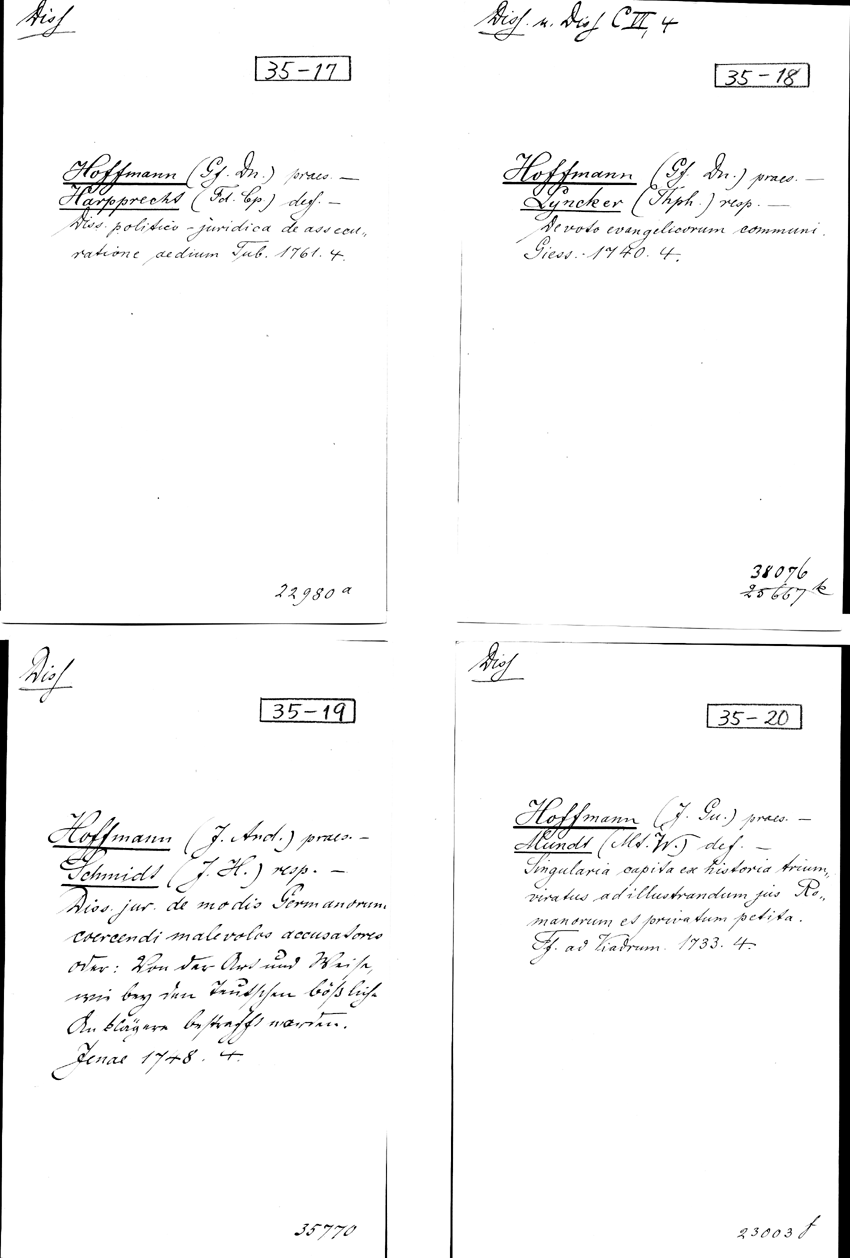 Diss
35-17
Hoffmann (Gf. Dn.) praes. —
Harpprecht (Fd. Cp.) def. —
Diss. politico-juridica de assecu-
ratione aedium Tub. 1761. 4.
22980 a
Diss. u. Diss C VI, 4
35-18
Hoffmann (Gf. Dn.) praes. —
Lyncker (Thph.) resp. —
De voto evangelicorum communi.
Giess. 1740. 4.
38076
25667 k
Diss
35-19
Hoffmann (J. And.) praes. —
Schmidt (J. H.) resp. —
Diss. jur. de modis Germanorum
coercendi malevolos accusatores
oder: Von der Art und Weise,
wie bey den Teutschen bößliche
Anklägere bestrafft werden.
Jenae 1748. 4.
35770
Diss
35-20
Hoffmann (J. Gu.) praes. —
Mundt (Mt. W.) def. —
Singularia capita ex historia trium-
viratus ad illustrandum jus Ro-
manorum et privatum petita.
Ff. ad Viadrum. 1733. 4.
23003 f